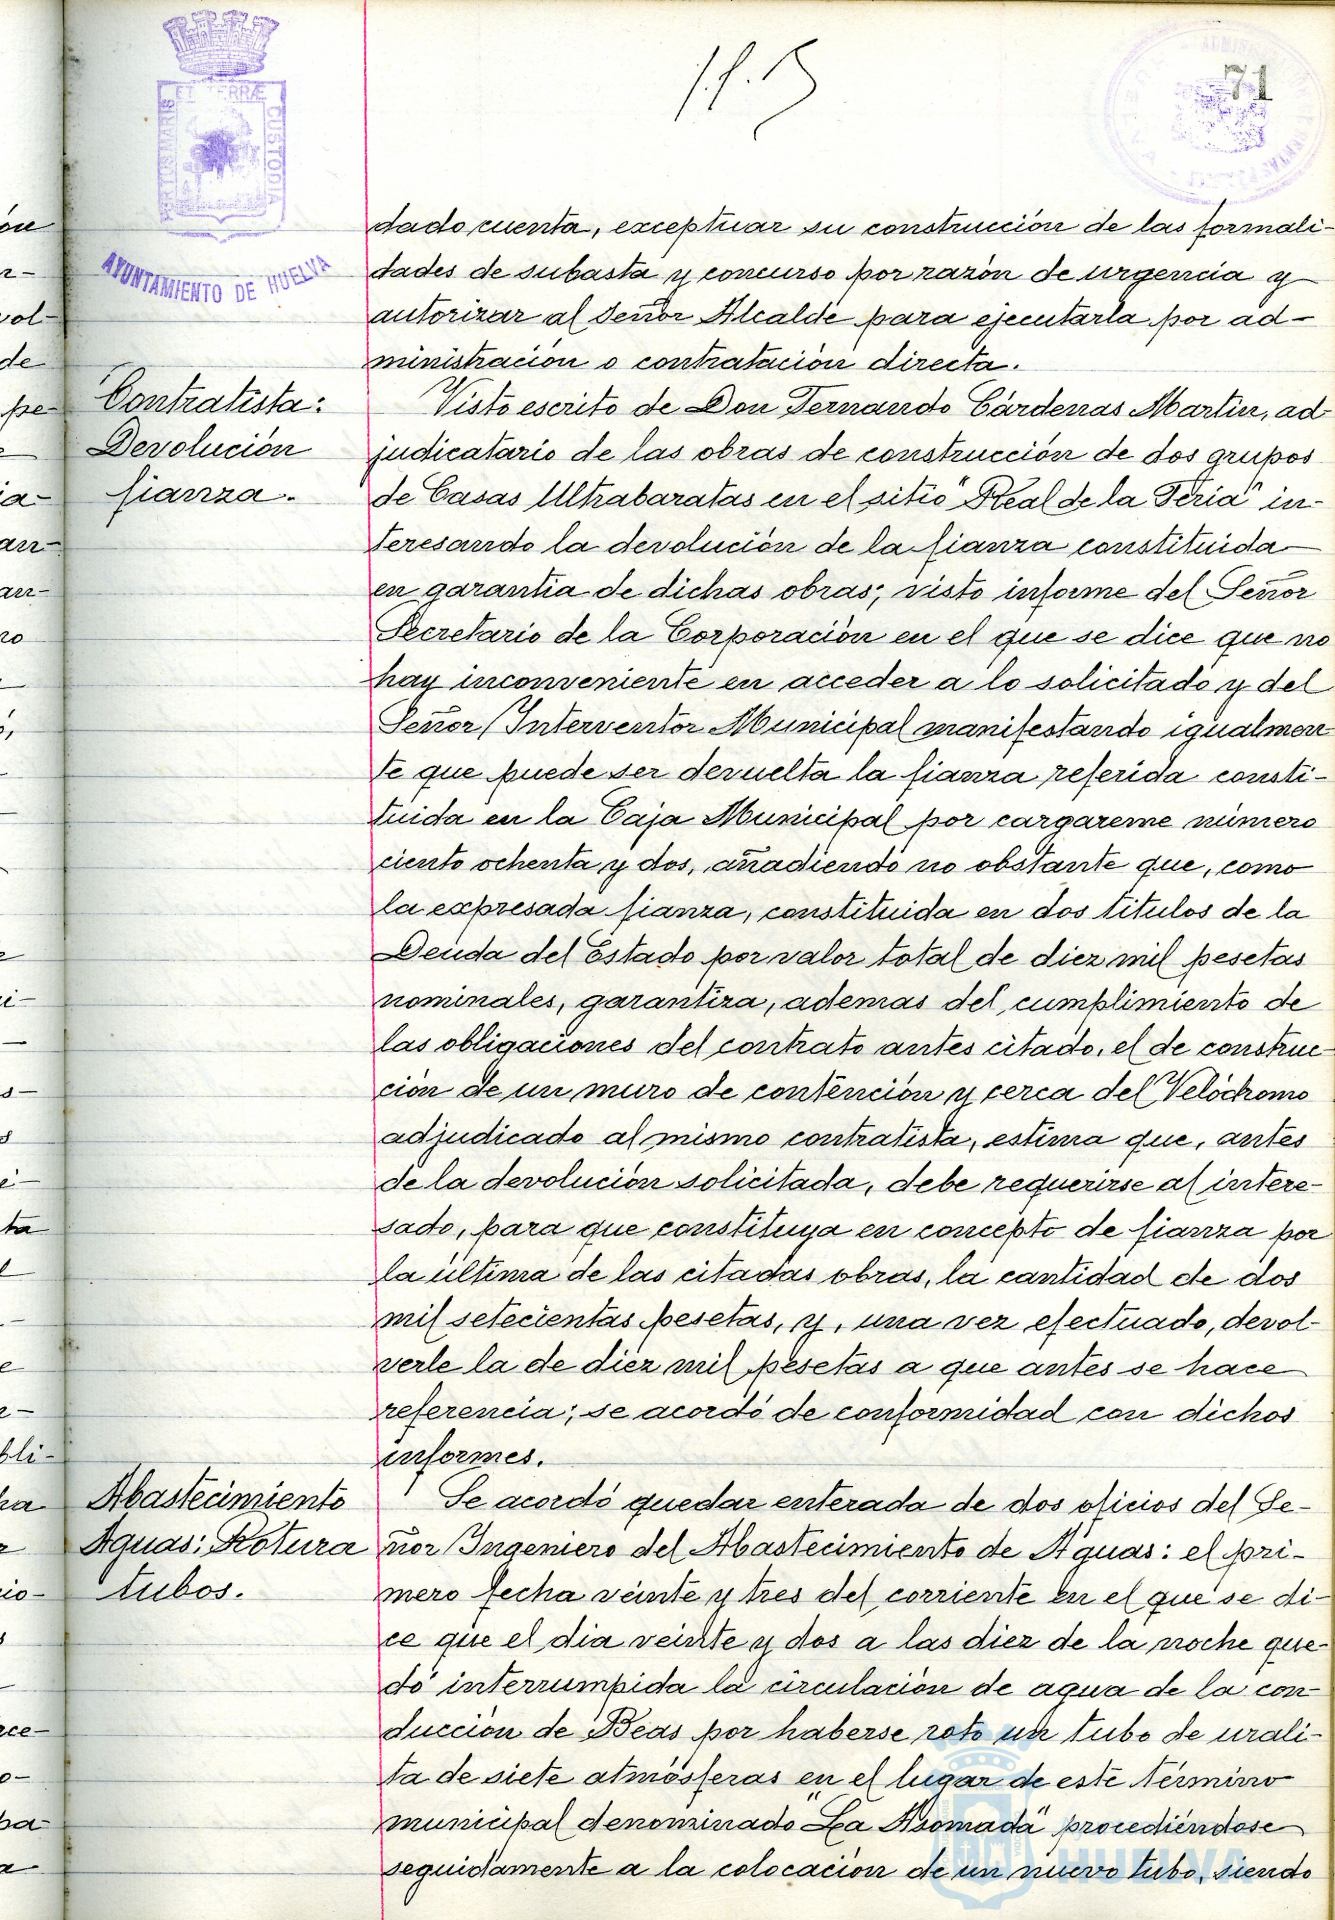 71
PORTUS MARIS ET TERRÆ CUSTODIA
AYUNTAMIENTO DE HUELVA
dado cuenta, exceptuar su construcción de las formali-
dades de subasta y concurso por razón de urgencia y
autorizar al Señor Alcalde para ejecutarla por ad-
ministración o contratación directa.
Contratista:
Devolución
fianza.
Visto escrito de Don Fernando Cárdenas Martín, ad-
judicatario de las obras de construcción de dos grupos
de Casas Ultrabaratas en el sitio "Real de la Feria" in-
teresando la devolución de la fianza constituida
en garantía de dichas obras; visto informe del Señor
Secretario de la Corporación en el que se dice que no
hay inconveniente en acceder a lo solicitado y del
Señor Interventor Municipal manifestando igualmen-
te que puede ser devuelta la fianza referida consti-
tuida en la Caja Municipal por cargareme número
ciento ochenta y dos, añadiendo no obstante que, como
la expresada fianza, constituida en dos titulos de la
Deuda del Estado por valor total de diez mil pesetas
nominales, garantiza, ademas del cumplimiento de
las obligaciones del contrato antes citado, el de construc-
ción de un muro de contención y cerca del Velódromo
adjudicado al mismo contratista, estima que, antes
de la devolución solicitada, debe requerirse al intere-
sado, para que constituya en concepto de fianza por
la última de las citadas obras, la cantidad de dos
mil setecientas pesetas, y, una vez efectuado, devol-
verle la de diez mil pesetas a que antes se hace
referencia; se acordó de conformidad con dichos
informes.
Abastecimiento
Aguas: Rotura
tubos.
Se acordó quedar enterada de dos oficios del Se-
ñor Ingeniero del Abastecimiento de Aguas: el pri-
mero fecha veinte y tres del corriente en el que se di-
ce que el dia veinte y dos a las diez de la noche que-
dó interrumpida la circulación de agua de la con-
ducción de Beas por haberse roto un tubo de urali-
ta de siete atmósferas en el lugar de este término
municipal denominado "La Asomada" procediéndose
seguidamente a la colocación de un nuevo tubo, siendo
HUELVA